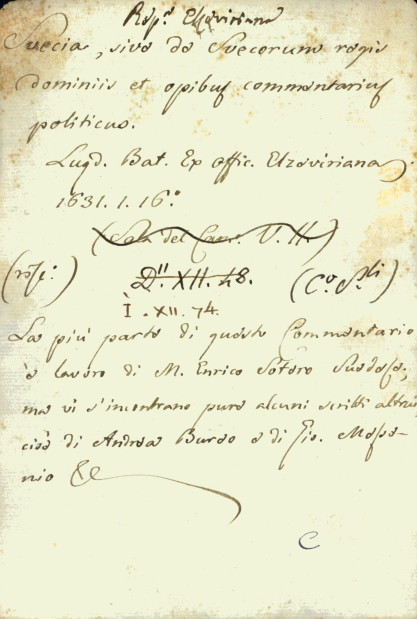 Rep.ª Elzeviriana
Suecia, sive de Suecorum regis
dominiis et opibus commentarius
politicus.
Lugd. Bat. Ex offic. Elzeviriana
1631. 1. 16.º
(Sala del Cam. V. H.)
D.II XII. 48.
I. XII. 74.
La più parte di questo Commentario
è lavoro di M. Enrico Sotero Suedese,
ma vi s'incontrano pure alcuni scritti altrui
cioè di Andrea Bureo e di Gio. Messe-
nio &c
C